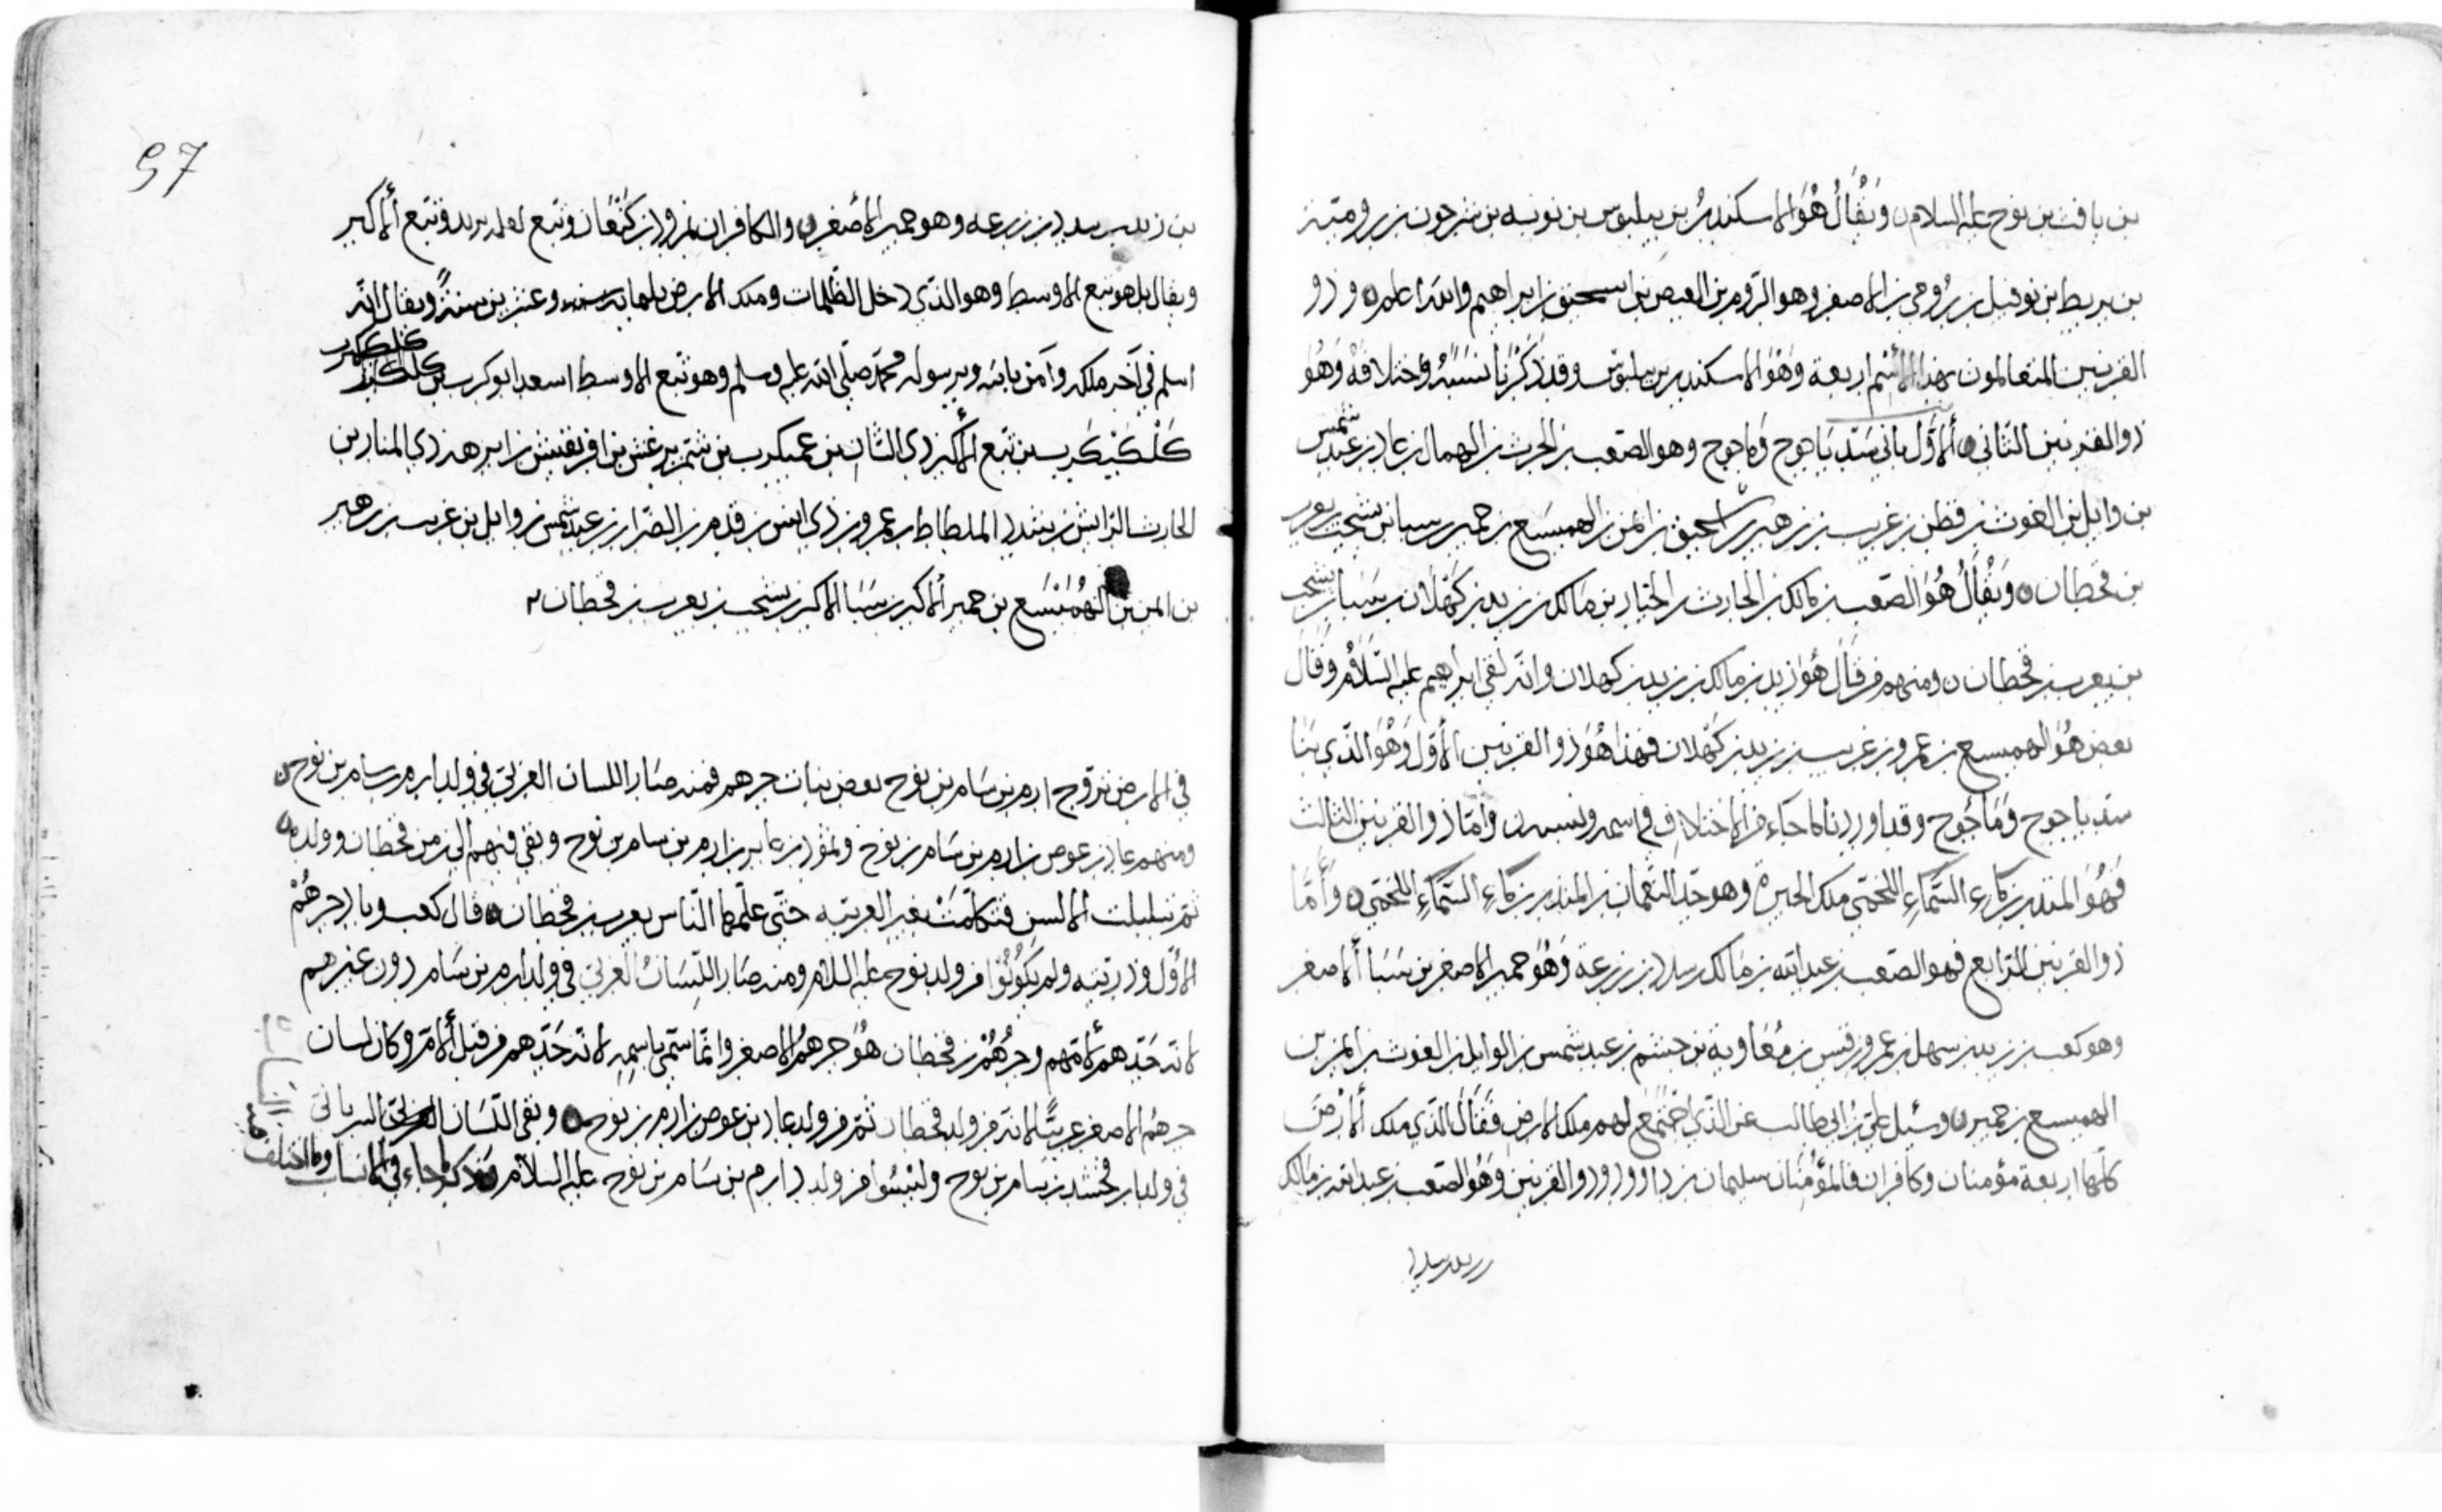 بن يافث بن نوح عليه السلام ويقال هو الاسكندر بن بيلبوس بن نوبه بن شرحون بن رومية بن
بن بربط بن نوفيل بن رومي بن الاصفر وهو الروم بن العيص بن اسحق بن ابراهيم والله اعلم وذو
القرنين المتعالمون بهذا الاسم اربعة وهو الاسكندر بن بيلبوس وقد ذكرنا نسبه واختلافه وهو
ذو القرنين الثاني الاول باني سد ياجوج وماجوج وهو الصعب بن الحرث بن الهمال بن عاد بن عبد شمس
بن وايل بن الغوث بن قطن بن غريب بن زهير بن ايمن بن الهميسع بن حمير بن سبا بن يشجب بن يعرب
بن قحطان ويقال هو الصعب بن مالك بن الحارث بن الخيار بن مالك بن زيد بن كهلان بن سبا بن يشجب
بن يعرب بن قحطان ومنهم من قال هو زيد بن مالك بن زيد بن كهلان وانه لقي ابراهيم عليه السلام وقال
بعض هو الهميسع بن عمرو بن غريب بن زيد بن كهلان فهذا هو ذو القرنين الاول وهو الذي بنا
سد ياجوج وماجوج وقد اوردنا ما جاء من الاختلاف في اسمه ونسبه واما ذو القرنين الثالث
فهو المنذر بن ماء السماء اللخمي ملك الحيرة وهو جد النعمان بن المنذر بن ماء السماء اللخمي واما
ذو القرنين الرابع فهو الصعب بن عبد الله بن مالك بن سدد بن زرعة وهو حمير الاصغر بن سبا الاصغر
وهو كعب بن زيد بن سهل بن عمرو بن قيس بن معاوية بن جشم بن عبد شمس بن الوايل بن الغوث بن ايمن بن
الهميسع بن حمير وسئل علي بن ابي طالب عن الذي اجتمع لهم ملك الارض فقال الذي ملك الارض
كلها اربعة مؤمنان وكافران فالمؤمنان سليمان بن داوود وذو القرنين وهو الصعب بن عبد الله بن مالك
بن زيد بن سدد
97
بن زيد بن سدد بن زرعه وهو حمير الاصغر والكافران نمرود بن كنعان وتبع وتبع الاكبر
ويقال بل هو تبع الاوسط وهو الذي دخل الظلمات وملك الارض وعشرين سنة ويقال انه
اسلم في آخر ملكه وآمن بالله وبرسوله محمد صلى الله عليه وسلم وهو تبع الاوسط اسعد ابو كرب بن كلكيكرب
كلكيكرب بن تبع الاكبر ذي الشان بن عميكرب بن شمر يرعش بن افريقيش بن ابرهه ذي المنار بن
الحارث الرايش بن شدد الملطاط بن عمرو بن ذي ابين بن قدم بن الصوار بن عبد شمس بن وايل بن غريب بن زهير
بن ايمن بن الهميسع بن حمير الاكبر بن سبا الاكبر بن يشجب بن يعرب بن قحطان
في الارض تزوج ارم بن سام بن نوح بعض بنات جرهم فمنه صار اللسان العربي في ولد ارم بن سام بن نوح
ومنهم عاد بن عوص بن ارم بن سام بن نوح وثمود بن عابر بن ارم بن سام بن نوح وبقي فيهم الى زمن قحطان وولده
ثم تبلبلت الالسن فتكلمت بغير العربيه حتى علمها الناس يعرب بن قحطان قال كعب وباد جرهم
الاول وذريته ولم يكونوا من ولد نوح عليه السلام ومنه صار اللسان العربي في ولد ارم بن سام دون غيرهم
لانه جدهم لامهم وجرهم بن قحطان هو جرهم الاصغر وانما سمي باسمه لانه جدهم من قبل الام وكان لسان
جرهم الاصغر عربيا لانه من ولد قحطان ثم من ولد عاد بن عوص بن ارم بن نوح وبقي اللسان السرياني
في ولد ارفخشد بن سام بن نوح وليسوا من ولد ارم بن سام بن نوح عليه السلام ما جاء في الانساب وما اختلف
فيه